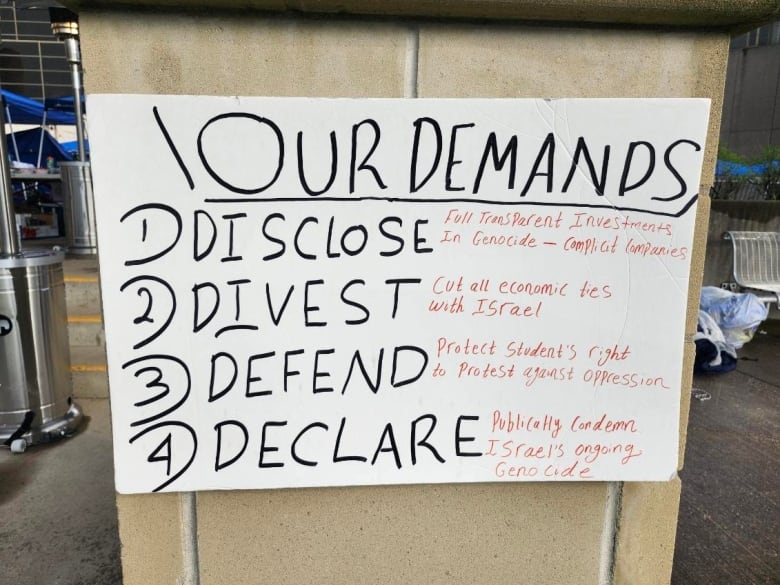 OUR DEMANDS
1) DISCLOSE
Full Transparent Investments
In Genocide – Complicit Companies
2) DIVEST
Cut all economic ties
with ISrael
3) DEFEND
Protect Student's right
to Protest against oppression
4) DECLARE
Publically Condemn
ISrael's ongoing
Genocide